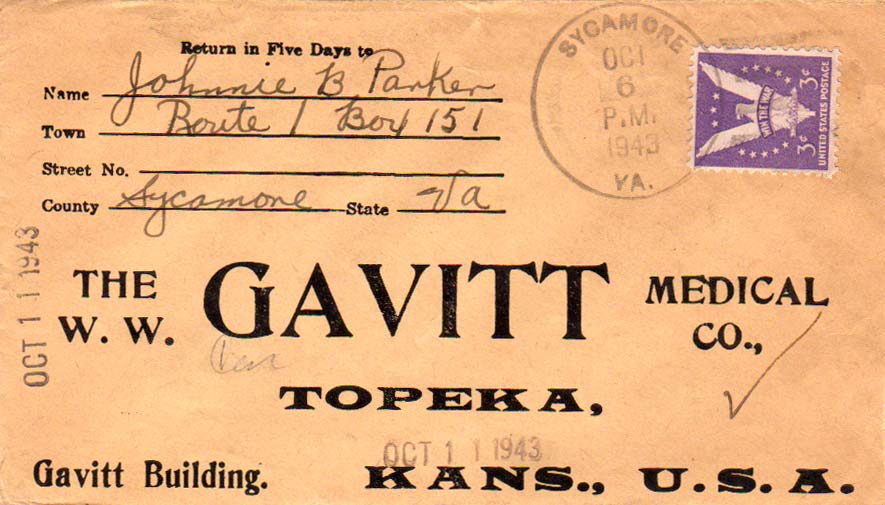 Return in Five Days to
Name Johnnie B Parker
Town Route 1 Box 151
Street No.
County Sycamore State Va
SYCAMORE
OCT
6
P.M.
1943
VA.
WIN THE WAR
3¢ 3¢
UNITED STATES POSTAGE
OCT 11 1943
THE W. W. GAVITT MEDICAL CO.,
TOPEKA,
OCT 11 1943
Gavitt Building. KANS., U. S. A.